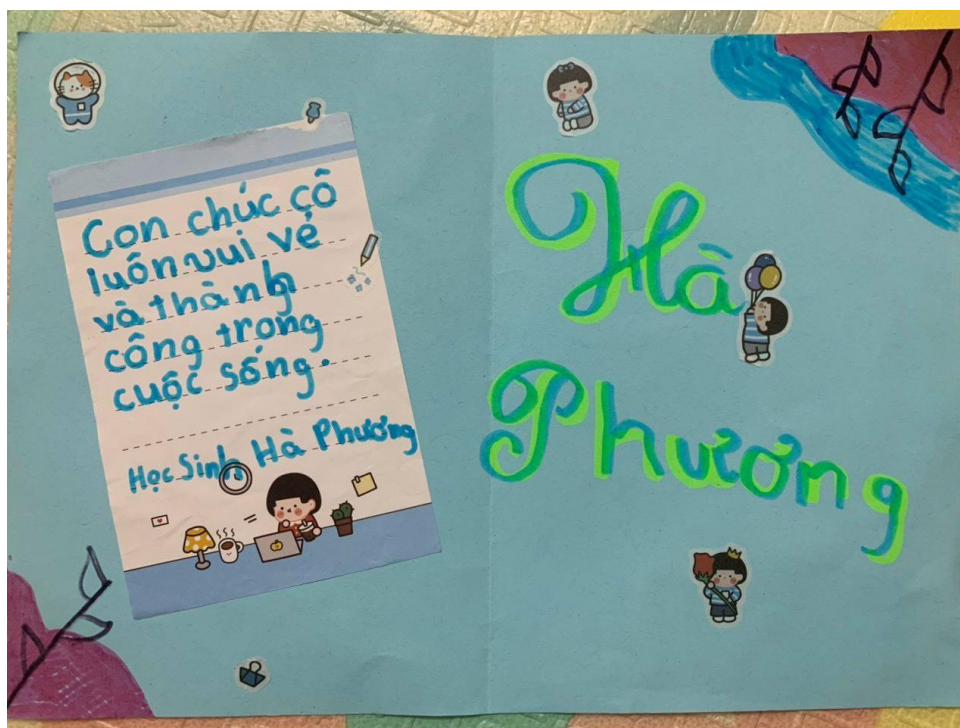 Con chúc cô
luôn vui vẻ
và thành
công trong
cuộc sống.
Học Sinh Hà Phương
Hà
Phương